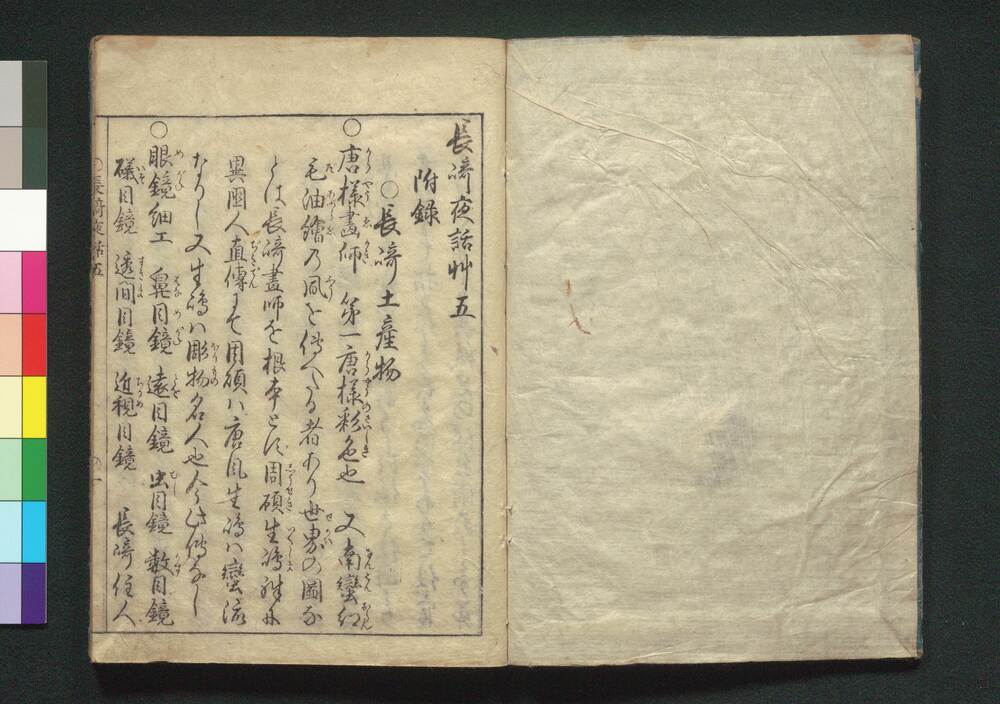 長﨑夜話艸五
附録
○長﨑土産物
○唐様畫師　第一唐様彩色也　又南蠻紅
毛油繪乃風を傳へたる者あり世界の圖な
とは長﨑畫師を根本とす周碩生嶋
異國人直傳にて周碩ハ唐風生嶋ハ蠻流
なりし又生嶋ハ彫物名人也今ハ此傳なし
○眼鏡細工　鼻目鏡　遠目鏡　虫目鏡　數目鏡
礒目鏡　透間目鏡　近視目鏡　長﨑住人
長﨑夜話五